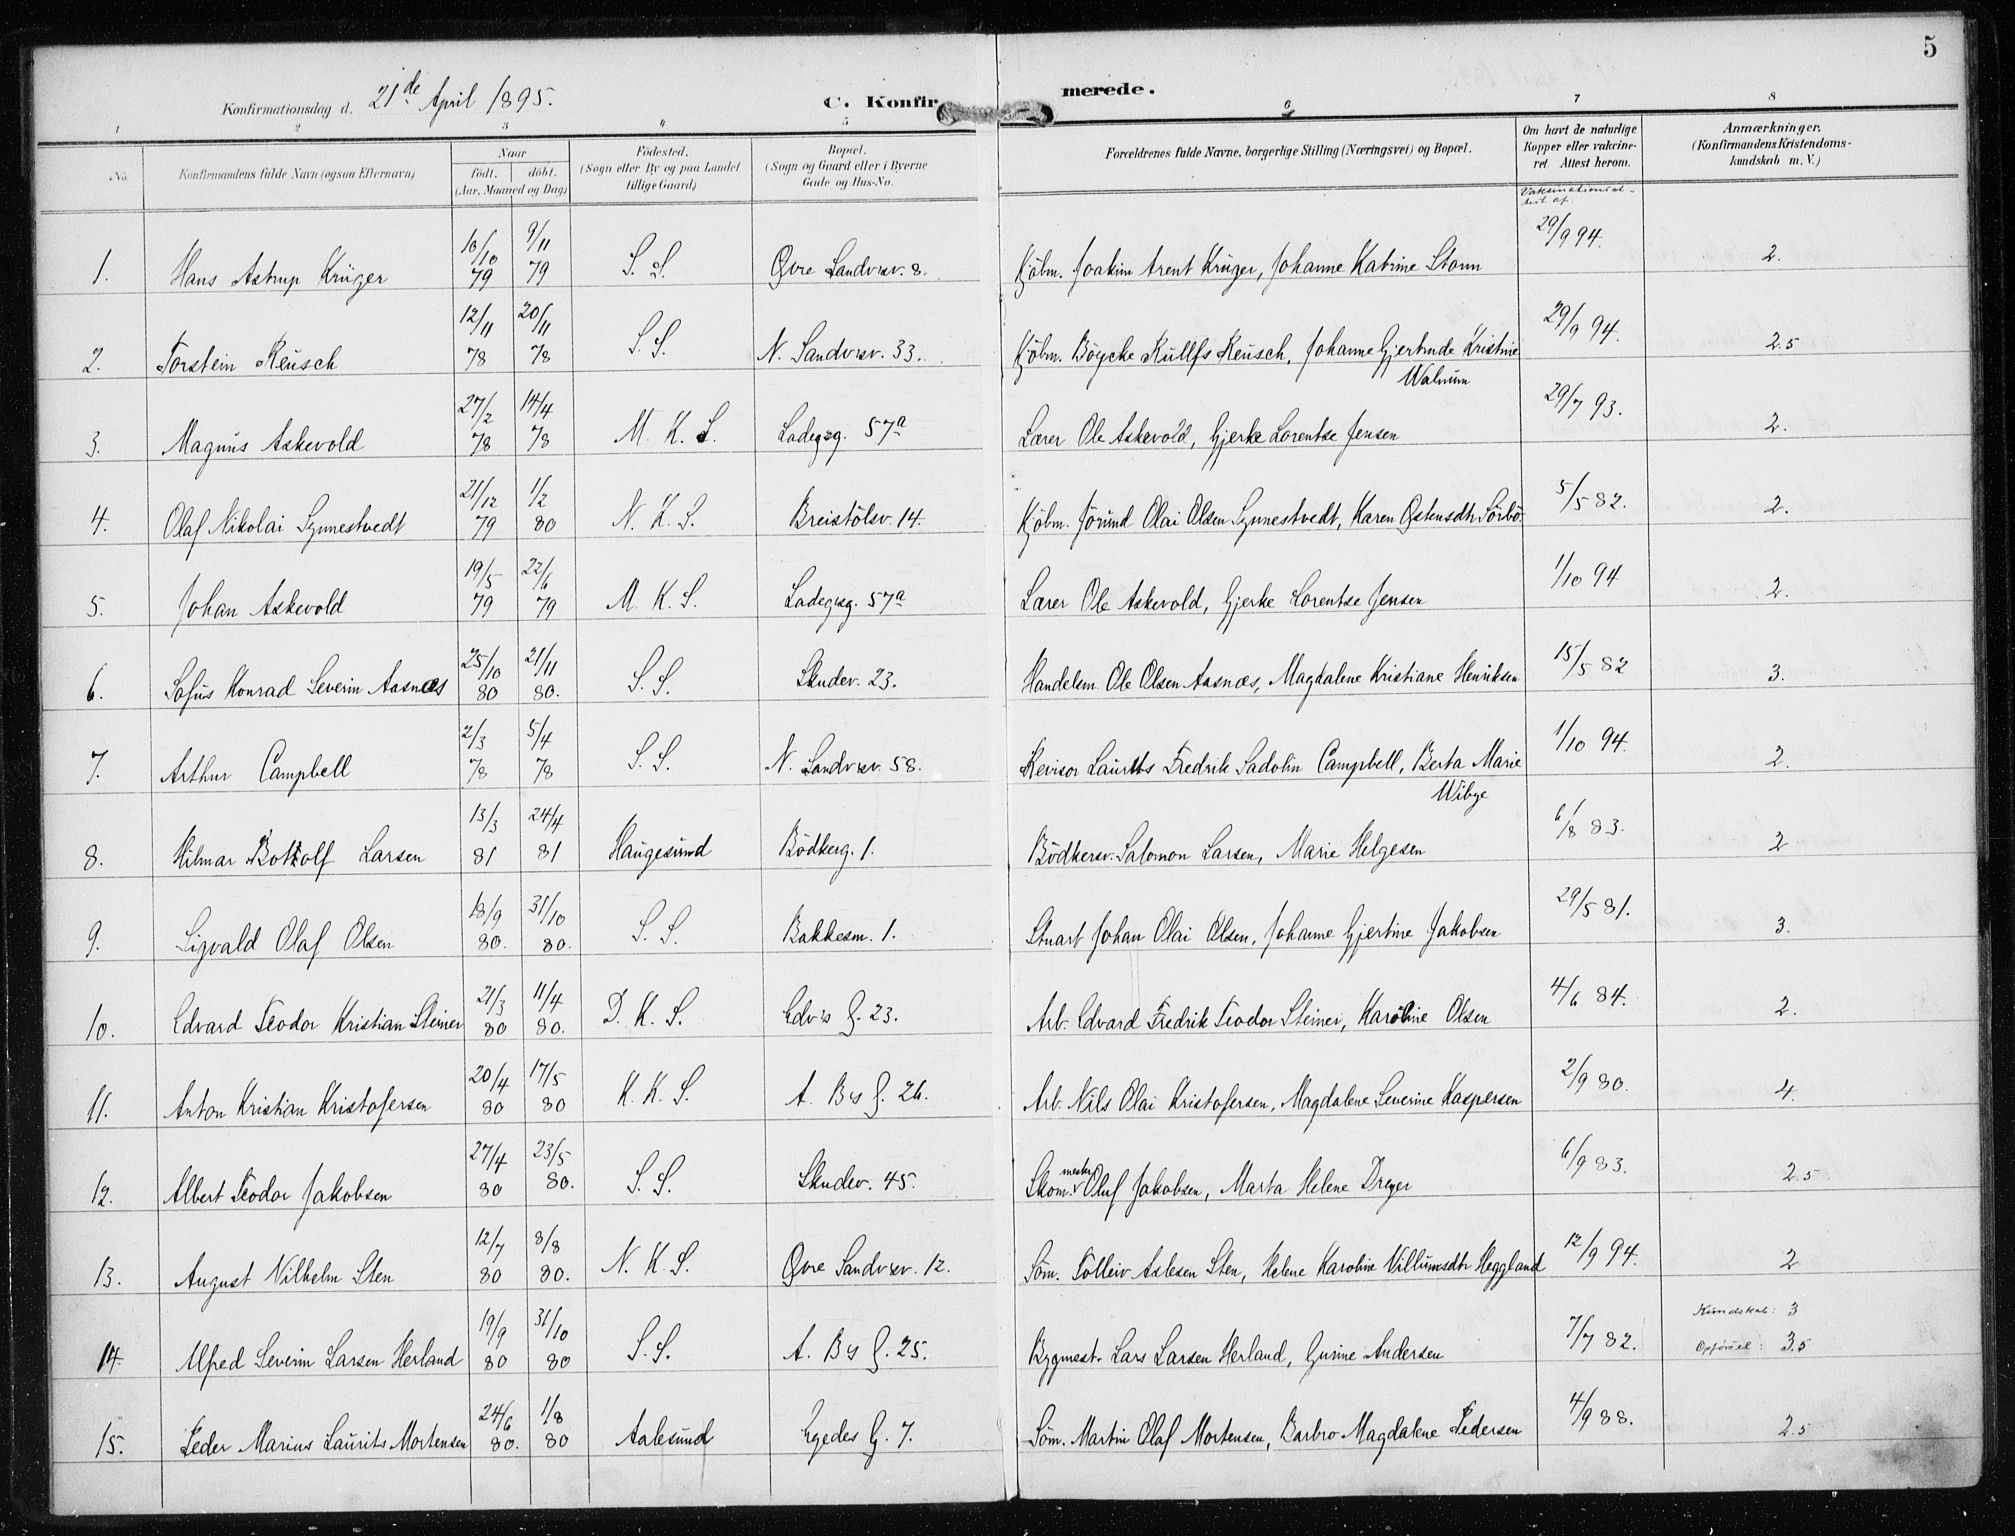 5
Konfirmationsdag d. 21de April 1895. C. Konfir merede.
1 2 3 4 5 6 7 8
No. Konfirmandens fulde Navn (ogsaa Efternavn) Naar født. døbt. (Aar, Maaned og Dag) Fødested. (Sogn eller By og paa Landet tillige Gaard) Bopæl. (Sogn og Gaard eller i Byerne Gade og Hus-No. Forældrenes fulde Navne, borgerlige Stilling (Næringsvei) og Bopæl. Om havt de naturlige Kopper eller vakcineret. Attest herom. Anmærkninger. (Konfirmandens Kristendomskundskab m. V.)
1. Hans Astrup Krüger 10/10 79 9/11 79 S. S. Øvre Sandvsv. 8. Kjöbm. Joakim Arent Krüger, Johanne Katrine Stann 29/9 94. 2.
2. Torstein Reusch 12/11 78 20/11 78 S. S. N. Sandvsv. 33. Kjöbm. Böycke Rullfs Reusch, Johanne Gjertrude Kristine Walnum 29/9 94. 2.5
3. Magnus Askevold 27/2 78 14/4 78 M. K. S. Ladegsg. 57a Lærer Ole Askevold, Gjerke Lorentse Jensen 29/7 93. 2.
4. Olaf Nikolai Synnestvedt 21/12 79 1/2 80 N. K. S. Breistölsv. 14. Kjöbm. Jörund Olai Olsen Synnestvedt, Karen Östensdtr Sörbö 5/5 82. 2.
5. Johan Askevold 19/5 79 22/6 79 M. K. S. Ladegsg. 57a Lærer Ole Askevold, Gjerke Lorentse Jensen 1/10 94 2.
6. Sofus Konrad Severin Aasnæs 25/10 80 21/11 80. S. S. Skudev. 23. Handelsm. Ole Olsen Aasnæs, Magdalene Kristiane Henriksen 15/5 82 3.
7. Arthur Campbell 2/3 78 5/4 78 S. S. N. Sandvsv. 58. Revisor Laurits Fredrik Sadolin Campbell, Berta Marie Wibye 1/10 94. 2.
8. Hilmar Bottolf Larsen 13/3 81 24/4 81 Haugesund Bödkerg. 1. Bödkersv. Salomon Larsen, Marie Helgesen 6/8 83. 2
9. Sigvald Olaf Olsen 18/9 80. 31/10 80. S. S. Bakkesm. 1. Stuart Johan Olai Olsen, Johanne Gjertine Jakobsen 29/5 81. 3.
10. Edvard Teodor Kristian Steiner 21/3 80 11/4 80. D. K. S. Edv's G. 23. Arb. Edvard Fredrik Teodor Steiner, Karoline Olsen 4/6 84. 2.
11. Anton Kristian Kristofersen 20/4 80 17/5 80 K. K. S. A. B's G. 26. Arb. Nils Olai Kristofersen, Magdalene Severine Kaspersen 2/9 80. 4.
12. Albert Teodor Jakobsen 27/4 80 23/5 80. S. S. Skudev. 45. Skom.mester Oluf Jakobsen, Marta Helene Dreyer 6/9 83. 2.5
13. August Vilhelm Sten 12/7 80 8/8 80. N. K. S. Øvre Sandvsv. 12. Söm. Tolleiv Aslesen Sten, Helene Karoline Villumsdtr Heggland 12/9 94. 2
14. Alfred Severin Larsen Herland 19/9 80 31/10 80 S. S. A. B's G. 25. Bygmest. Lars Larsen Herland, Gurine Andersen 7/7 82. Kundskab: 3 Opförsel: 3.5
15. Peder Marius Laurits Mortensen 24/6 80. 1/8 80 Aalesund Egedes G. 7. Söm. Martin Olaf Mortensen, Barbro Magdalene Pedersen 4/9 88. 2.5